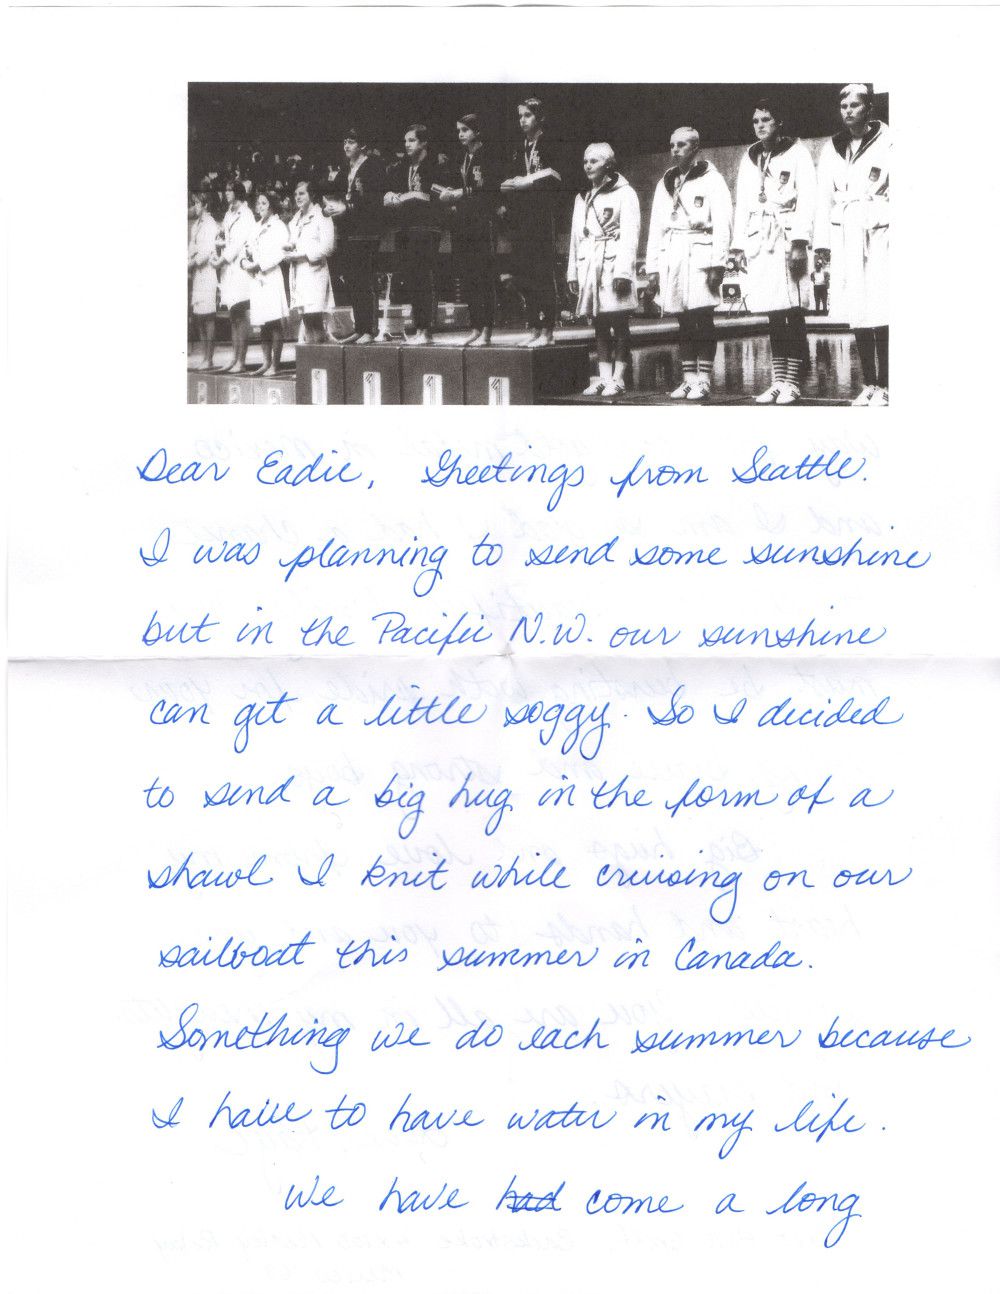 1 1 1 1
Dear Eadie, Greetings from Seattle.
I was planning to send some sunshine
but in the Pacific N.W. our sunshine
can get a little soggy. So I decided
to send a big hug in the form of a
shawl I knit while cruising on our
sailboat this summer in Canada.
Something we do each summer because
I have to have water in my life.
We have had come a long